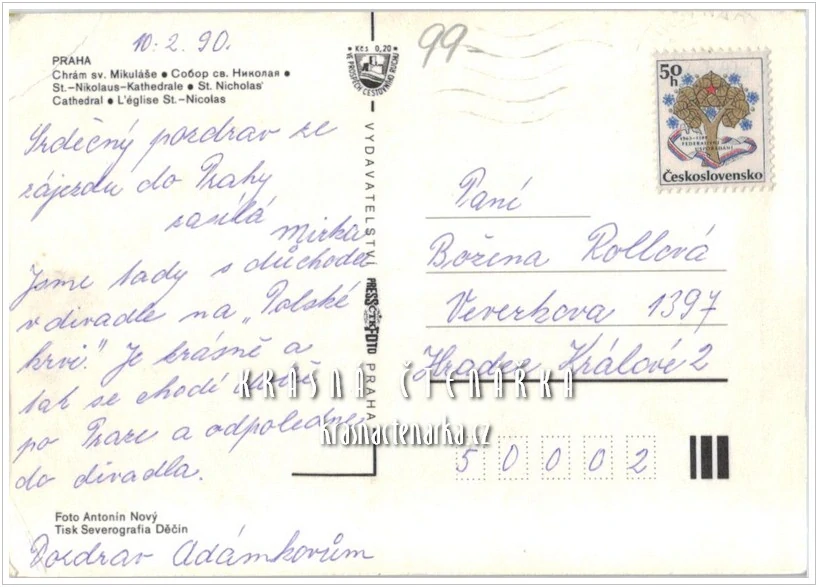 10. 2. 90.
PRAHA
Chrám sv. Mikuláše • Собор св. Николая •
St.-Nikolaus-Kathedrale • St. Nicholas'
Cathedral • L'église St.-Nicolas
Srdečný pozdrav ze
zájezdu do Prahy
zasílá
Mirka
Jsme tady s důchodci
v divadle na „Polské
krvi." Je krásně a
tak se chodí
po Praze a odpoledne
do divadla.
Foto Antonín Nový
Tisk Severografia Děčín
Pozdrav Adámkovům
Kčs 0,20
VE PROSPĚCH CESTOVNÍHO RUCHU
VYDAVATELSTVÍ PRESSFOTO PRAHA
ČTK
99-
50h
FEDERATIVNÍ
USPOŘÁDÁNÍ
Československo
Paní
Božena Rollová
Veverkova 1397
Hradec Králové 2
50002
KRÁSNÁ ČTENÁRKA
krasnactenarka.cz